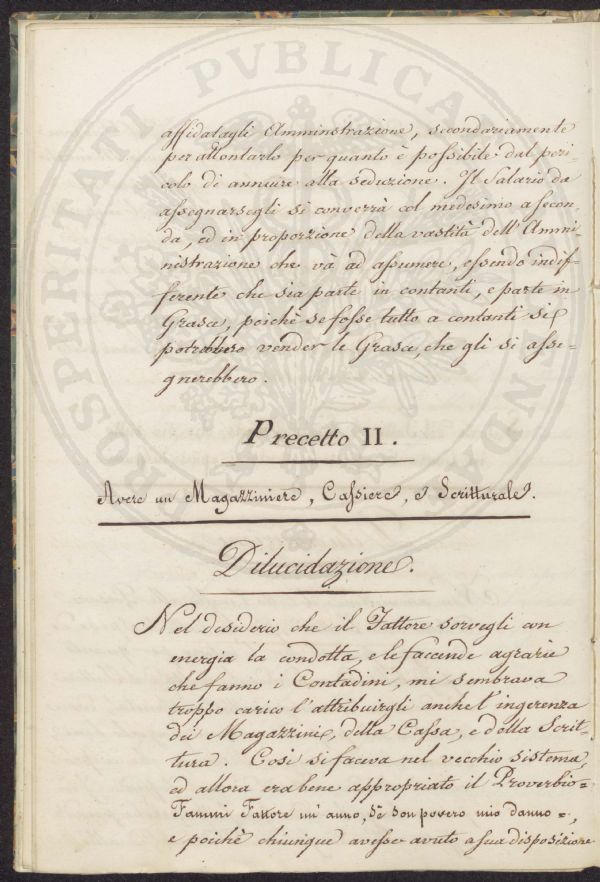 affidatagli Amminstrazione, secondariamente
per allontarlo per quanto è possibile dal peri-
colo di annuire alla seduzione. Il Salario da
assegnarsegli si converrà col medesimo a secon-
da, ed in proporzione della vastità dell'Ammi-
nistrazione che và ad assumere, essendo indif-
ferente che sia parte in contanti, e parte in
Grasce, poichè se fosse tutto a contanti si
potrebbero vender le Grasce, che gli si asse-
gnerebbero.
Precetto II.
Avere un Magazziniere, Cassiere, e Scritturale.
Dilucidazione.
Nel desiderio che il Fattore sorvegli con
energia la condotta, e le faccende agrarie
che fanno i Contadini, mi sembrava
troppo carico l'attribuirgli anche l'ingerenza
dei Magazzini, della Cassa, e della Scrit-
tura. Così si faceva nel vecchio sistema,
ed allora era bene appropriato il Proverbio=
Fammi Fattore un'anno, sè son povero mio danno=,
e poichè chiunque avesse avuto a sua disposizione
PROSPERITATI PVBLICAE